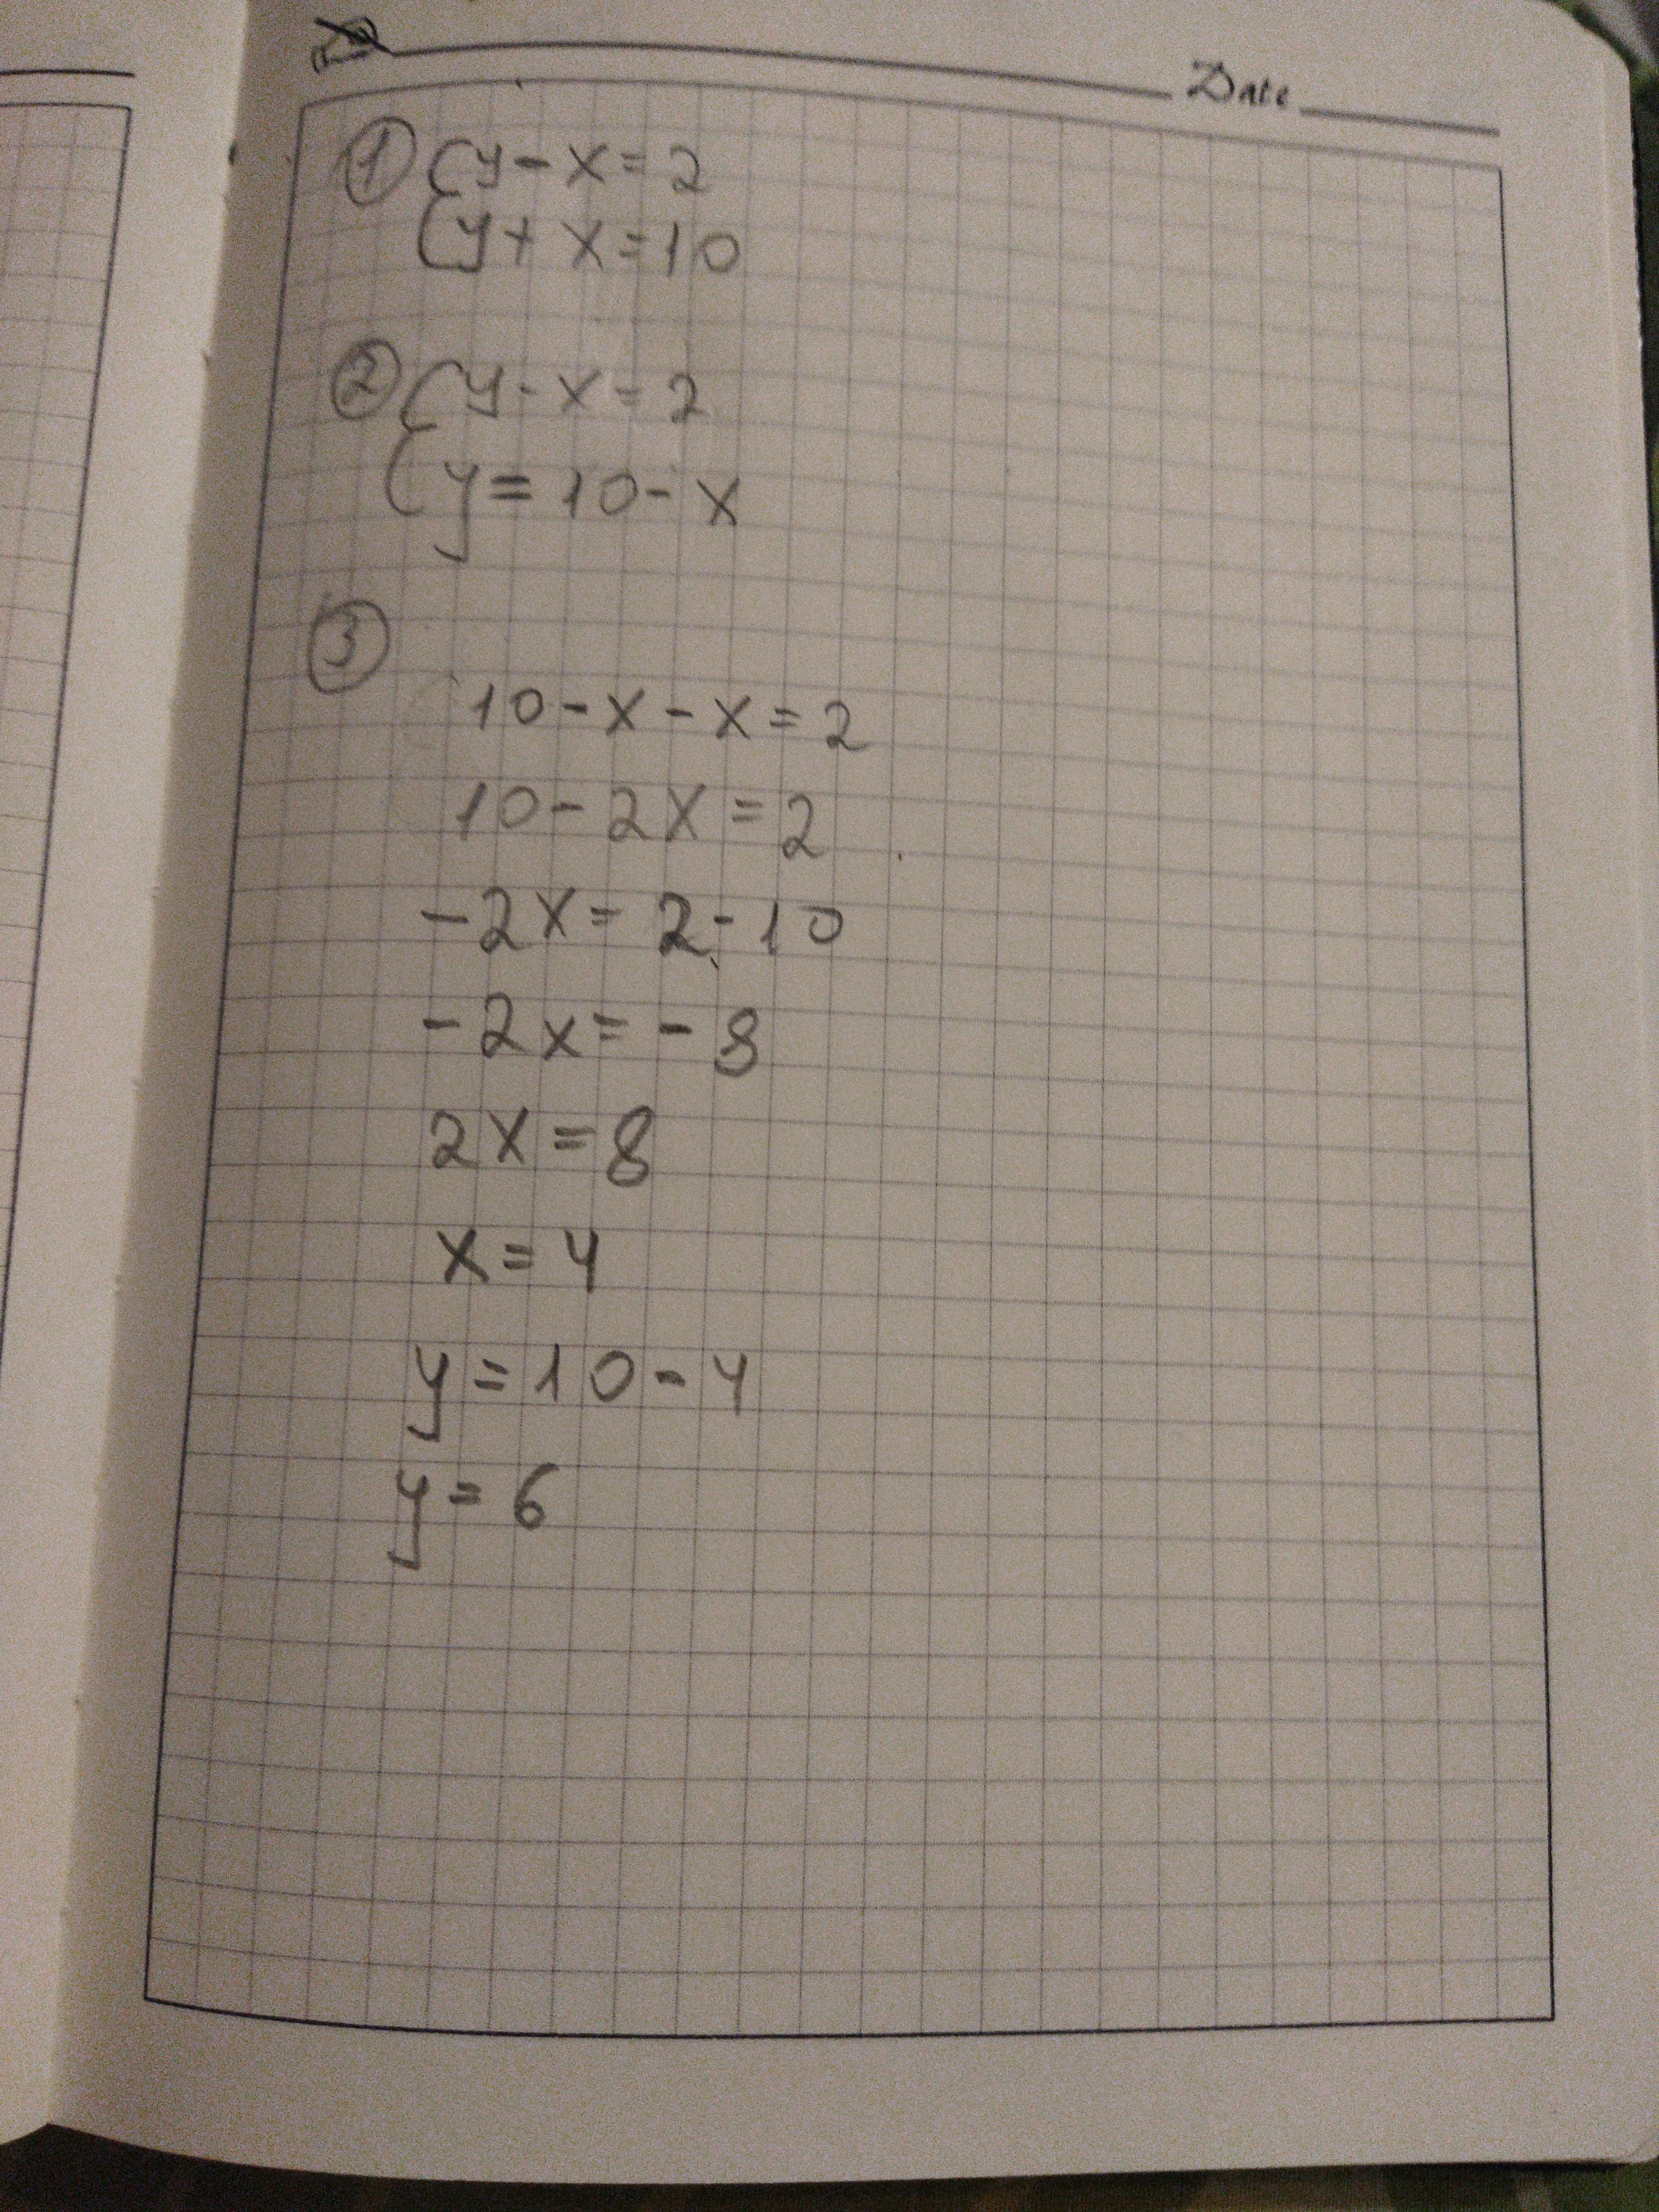 Date
① { y - x = 2
{ y + x = 10
② { y - x = 2
{ y = 10 - x
③
10 - x - x = 2
10 - 2x = 2
- 2x = 2 - 10
- 2x = - 8
2x = 8
x = 4
y = 10 - 4
y = 6